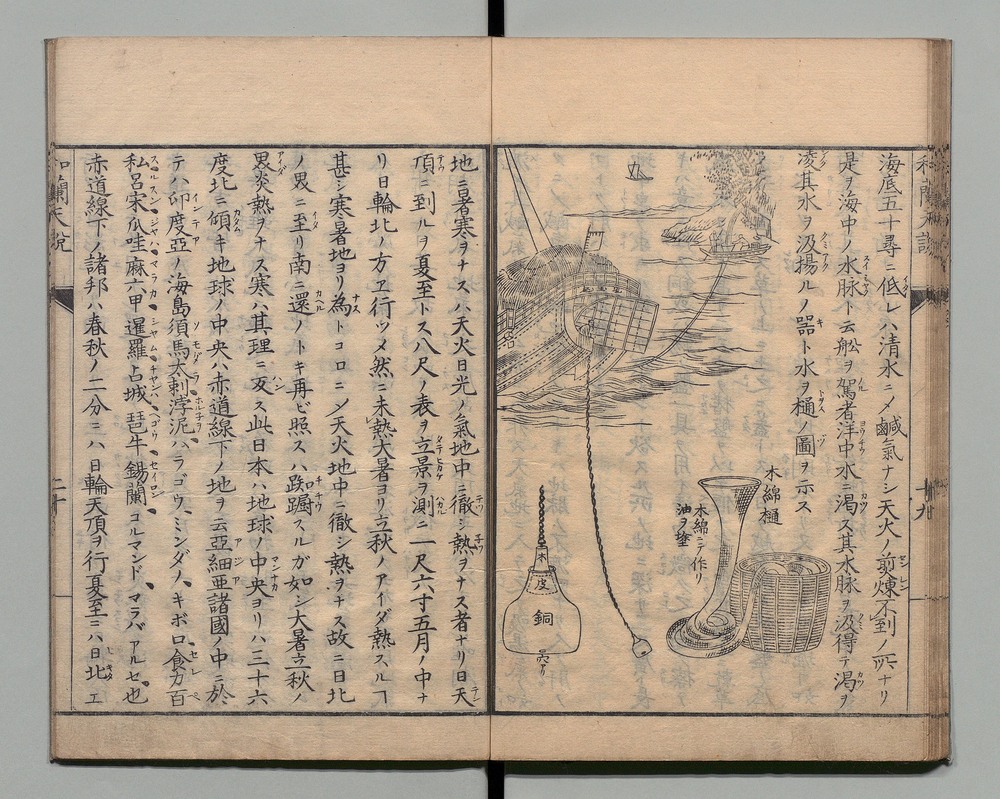 海底五十尋ニ低レハ清水ニメ鹹氣ナシ天火ノ煎煉不到ノ所ナリ
是ヲ海中ノ水脉ト云舩ヲ駕者洋中水ニ渇ス其水脉ヲ汲得テ渇ヲ
凌其水ヲ汲揚ルノ器ト水ヲ樋ノ圖ヲ示ス
木綿樋
木綿ニテ作リ
油ヲ塗
木
皮
銅
穴アリ
十九
地ニ暑寒ヲナスハ天火日光ノ氣地中ニ徹シ熱ヲナス者ナリ日天
頂ニ到ルヲ夏至トス八尺ノ表ヲ立景ヲ測ニ一尺六寸五月ノ中ナ
リ日輪北ノ方ヱ行ツメ然ニ未熱大暑ヨリ立秋ノアイダ熱スルヿ
甚シ寒暑地ヨリ為トコロニメ天火地中ニ徹シ熱ヲナス故ニ日北
ノ界ニ至リ南ニ還ノトキ再ビ照スハ跌蹰スルガ如シ大暑立秋ノ
界炎熱ヲナス寒ハ其理ニ反ス此日本ハ地球ノ中央ヨリハ三十六
度北ニ傾キ地球ノ中央ハ赤道線下ノ地ヲ云亞細亜諸國ノ中ニ於
テハ印度亞ノ海島須馬太剌浡泥ハラゴウミンダノキボロ食力百
私呂宋瓜哇麻六甲暹羅占城琶牛錫蘭コルマンドマラバアルセ也
赤道線下ノ諸邦ハ春秋ノ二分ニハ日輪天頂ヲ行夏至ニハ日北エ
和蘭天説
二十